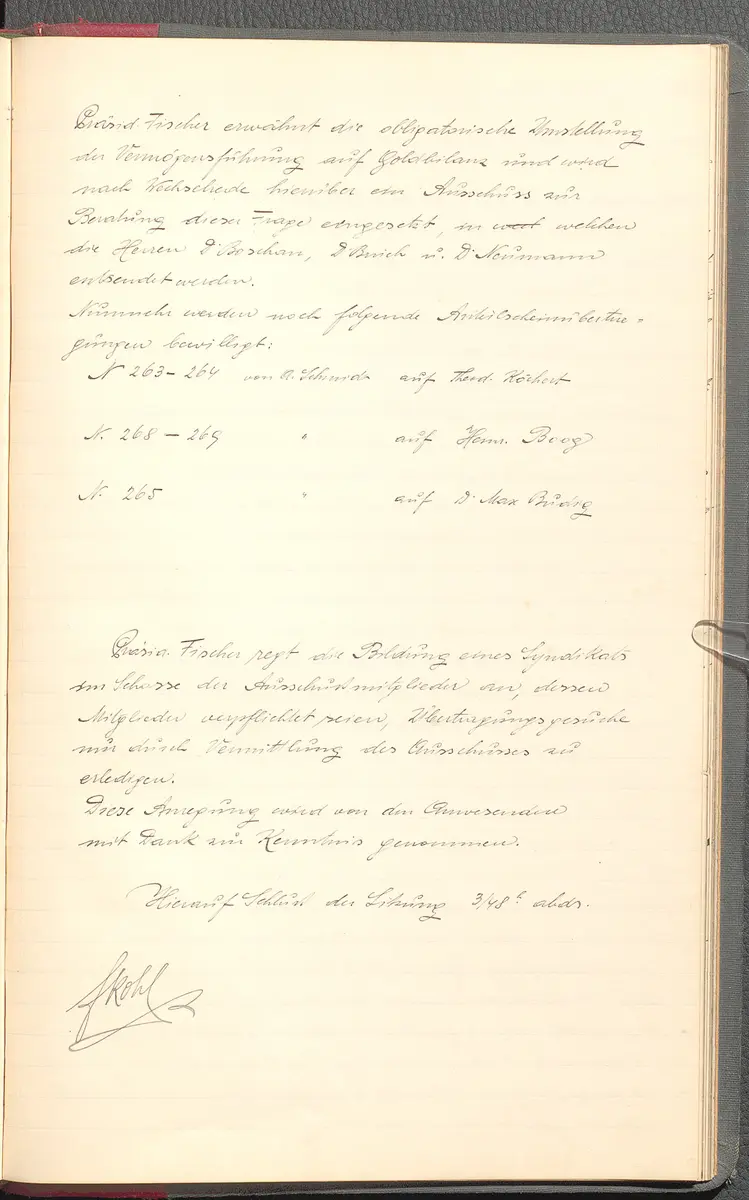 Präsid. Fischer erwähnt die obligatorische Umstellung
der Vermögensführung auf Goldbilanz und wird
nach Wechselrede hierüber ein Ausschuss zur
Beratung dieser Frage eingesetzt, in welchen
die Herren Dr Boschan, Dr u. Dr Neumann
entsendet werden.
Nunmehr werden noch folgende Anteilscheinübertra-
gungen bewilligt:
N 263 – 264 von A. Schmidt auf Theod. Köchert
N. 268 – 269 " auf Heinr. Boog
N. 265 " auf Dr Max Budig
Präsid. Fischer regt die Bildung eines Syndikats
im Schosse der Ausschussmitglieder an, dessen
Mitglieder verpflichtet seien, Übertragungsgesuche
nur durch Vermittlung des Ausschusses zu
erledigen.
Diese Anregung wird von den Anwesenden
mit Dank zur Kenntnis genommen.
Hierauf Schluss der Sitzung 3/4 8 h abds.
Kohl